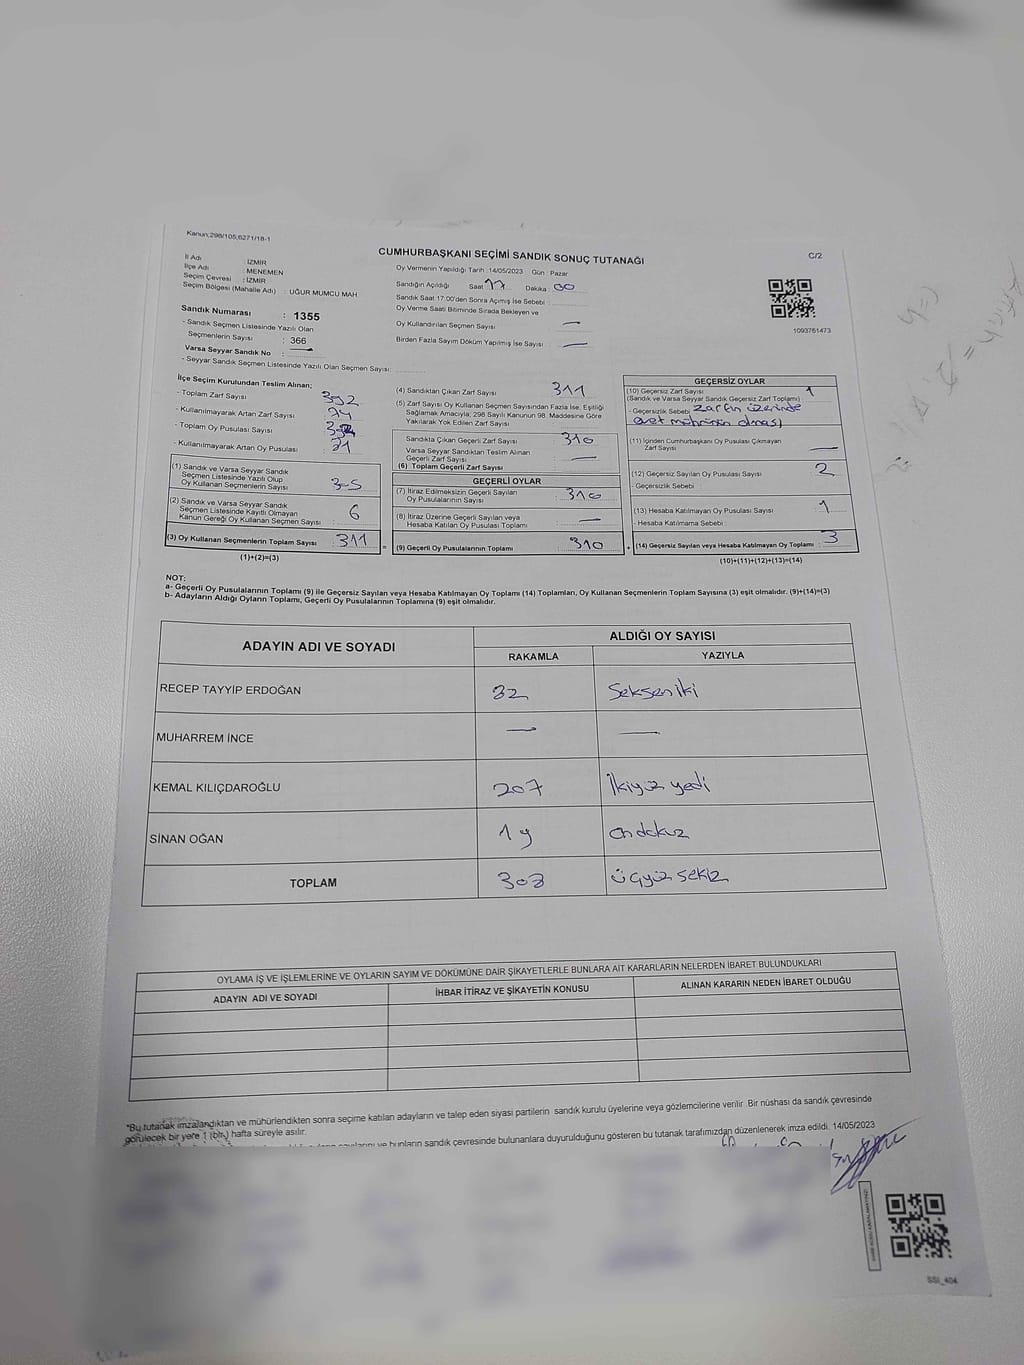 Kanun;298/105,6271/18-1
CUMHURBAŞKANI SEÇİMİ SANDIK SONUÇ TUTANAĞI
C/2
İl Adı : İZMİR
İlçe Adı : MENEMEN
Seçim Çevresi : İZMİR
Seçim Bölgesi (Mahalle Adı) : UĞUR MUMCU MAH
Sandık Numarası : 1355
- Sandık Seçmen Listesinde Yazılı Olan
Seçmenlerin Sayısı : 366
Varsa Seyyar Sandık No : —
- Seyyar Sandık Seçmen Listesinde Yazılı Olan Seçmen Sayısı:
Oy Vermenin Yapıldığı Tarih :14/05/2023 Gün : Pazar
Sandığın Açıldığı Saat 17 Dakika : 00
Sandık Saat 17:00'den Sonra Açımış İse Sebebi :
Oy Verme Saati Bitiminde Sırada Bekleyen ve
Oy Kullandırılan Seçmen Sayısı —
Birden Fazla Sayım Döküm Yapılmış İse Sayısı : —
1093761473
İlçe Seçim Kurulundan Teslim Alınan;
- Toplam Zarf Sayısı : 392
- Kullanılmayarak Artan Zarf Sayısı :
- Toplam Oy Pusulası Sayısı :
- Kullanılmayarak Artan Oy Pusulası :
(1) Sandık ve Varsa Seyyar Sandık
Seçmen Listesinde Yazılı Olup
Oy Kullanan Seçmenlerin Sayısı : 305
(2) Sandık ve Varsa Seyyar Sandık
Seçmen Listesinde Kayıtlı Olmayan
Kanun Gereği Oy Kullanan Seçmen Sayısı : 6
(3) Oy Kullanan Seçmenlerin Toplam Sayısı : 311
(1)+(2)=(3)
(4) Sandıktan Çıkan Zarf Sayısı : 311
(5) Zarf Sayısı Oy Kullanan Seçmen Sayısından Fazla İse, Eşitliği
Sağlamak Amacıyla; 298 Sayılı Kanunun 98. Maddesine Göre
Yakılarak Yok Edilen Zarf Sayısı :
Sandıkta Çıkan Geçerli Zarf Sayısı : 310
Varsa Seyyar Sandıktan Teslim Alınan
Geçerli Zarf Sayısı : —
(6) Toplam Geçerli Zarf Sayısı :
GEÇERLİ OYLAR
(7) İtiraz Edilmeksizin Geçerli Sayılan
Oy Pusulalarının Sayısı : 310
(8) İtiraz Üzerine Geçerli Sayılan veya
Hesaba Katılan Oy Pusulası Toplamı : —
(9) Geçerli Oy Pusulalarının Toplamı : 310
GEÇERSİZ OYLAR
(10) Geçersiz Zarf Sayısı : 1
(Sandık ve Varsa Seyyar Sandık Geçersiz Zarf Toplamı)
- Geçersizlik Sebebi : zarfın üzerinde
evet mührünün olması
(11) İçinden Cumhurbaşkanı Oy Pusulası Çıkmayan
Zarf Sayısı : —
(12) Geçersiz Sayılan Oy Pusulası Sayısı : 2
- Geçersizlik Sebebi :
(13) Hesaba Katılmayan Oy Pusulası Sayısı : 1
- Hesaba Katılmama Sebebi :
(14) Geçersiz Sayılan veya Hesaba Katılmayan Oy Toplamı : 3
(10)+(11)+(12)+(13)=(14)
NOT:
a- Geçerli Oy Pusulalarının Toplamı (9) ile Geçersiz Sayılan veya Hesaba Katılmayan Oy Toplamı (14) Toplamları, Oy Kullanan Seçmenlerin Toplam Sayısına (3) eşit olmalıdır. (9)+(14)=(3)
b- Adayların Aldığı Oyların Toplamı, Geçerli Oy Pusulalarının Toplamına (9) eşit olmalıdır.
ADAYIN ADI VE SOYADI
ALDIĞI OY SAYISI
RAKAMLA YAZIYLA
RECEP TAYYİP ERDOĞAN 82 Seksen iki
MUHARREM İNCE — —
KEMAL KILIÇDAROĞLU 207 İkiyüz yedi
SİNAN OĞAN 19 on dokuz
TOPLAM 308 üçyüz sekiz
OYLAMA İŞ VE İŞLEMLERİNE VE OYLARIN SAYIM VE DÖKÜMÜNE DAİR ŞİKAYETLERLE BUNLARA AİT KARARLARIN NELERDEN İBARET BULUNDUKLARI
ADAYIN ADI VE SOYADI İHBAR İTİRAZ VE ŞİKAYETİN KONUSU ALINAN KARARIN NEDEN İBARET OLDUĞU
*Bu tutanak imzalandıktan ve mühürlendikten sonra seçime katılan adayların ve talep eden siyasi partilerin sandık kurulu üyelerine veya gözlemcilerine verilir. Bir nüshası da sandık çevresinde
görülecek bir yere 1 (bir) hafta süreyle asılır.
ve bunların sandık çevresinde bulunanlara duyurulduğunu gösteren bu tutanak tarafımızdan düzenlenerek imza edildi. 14/05/2023
SSI_404